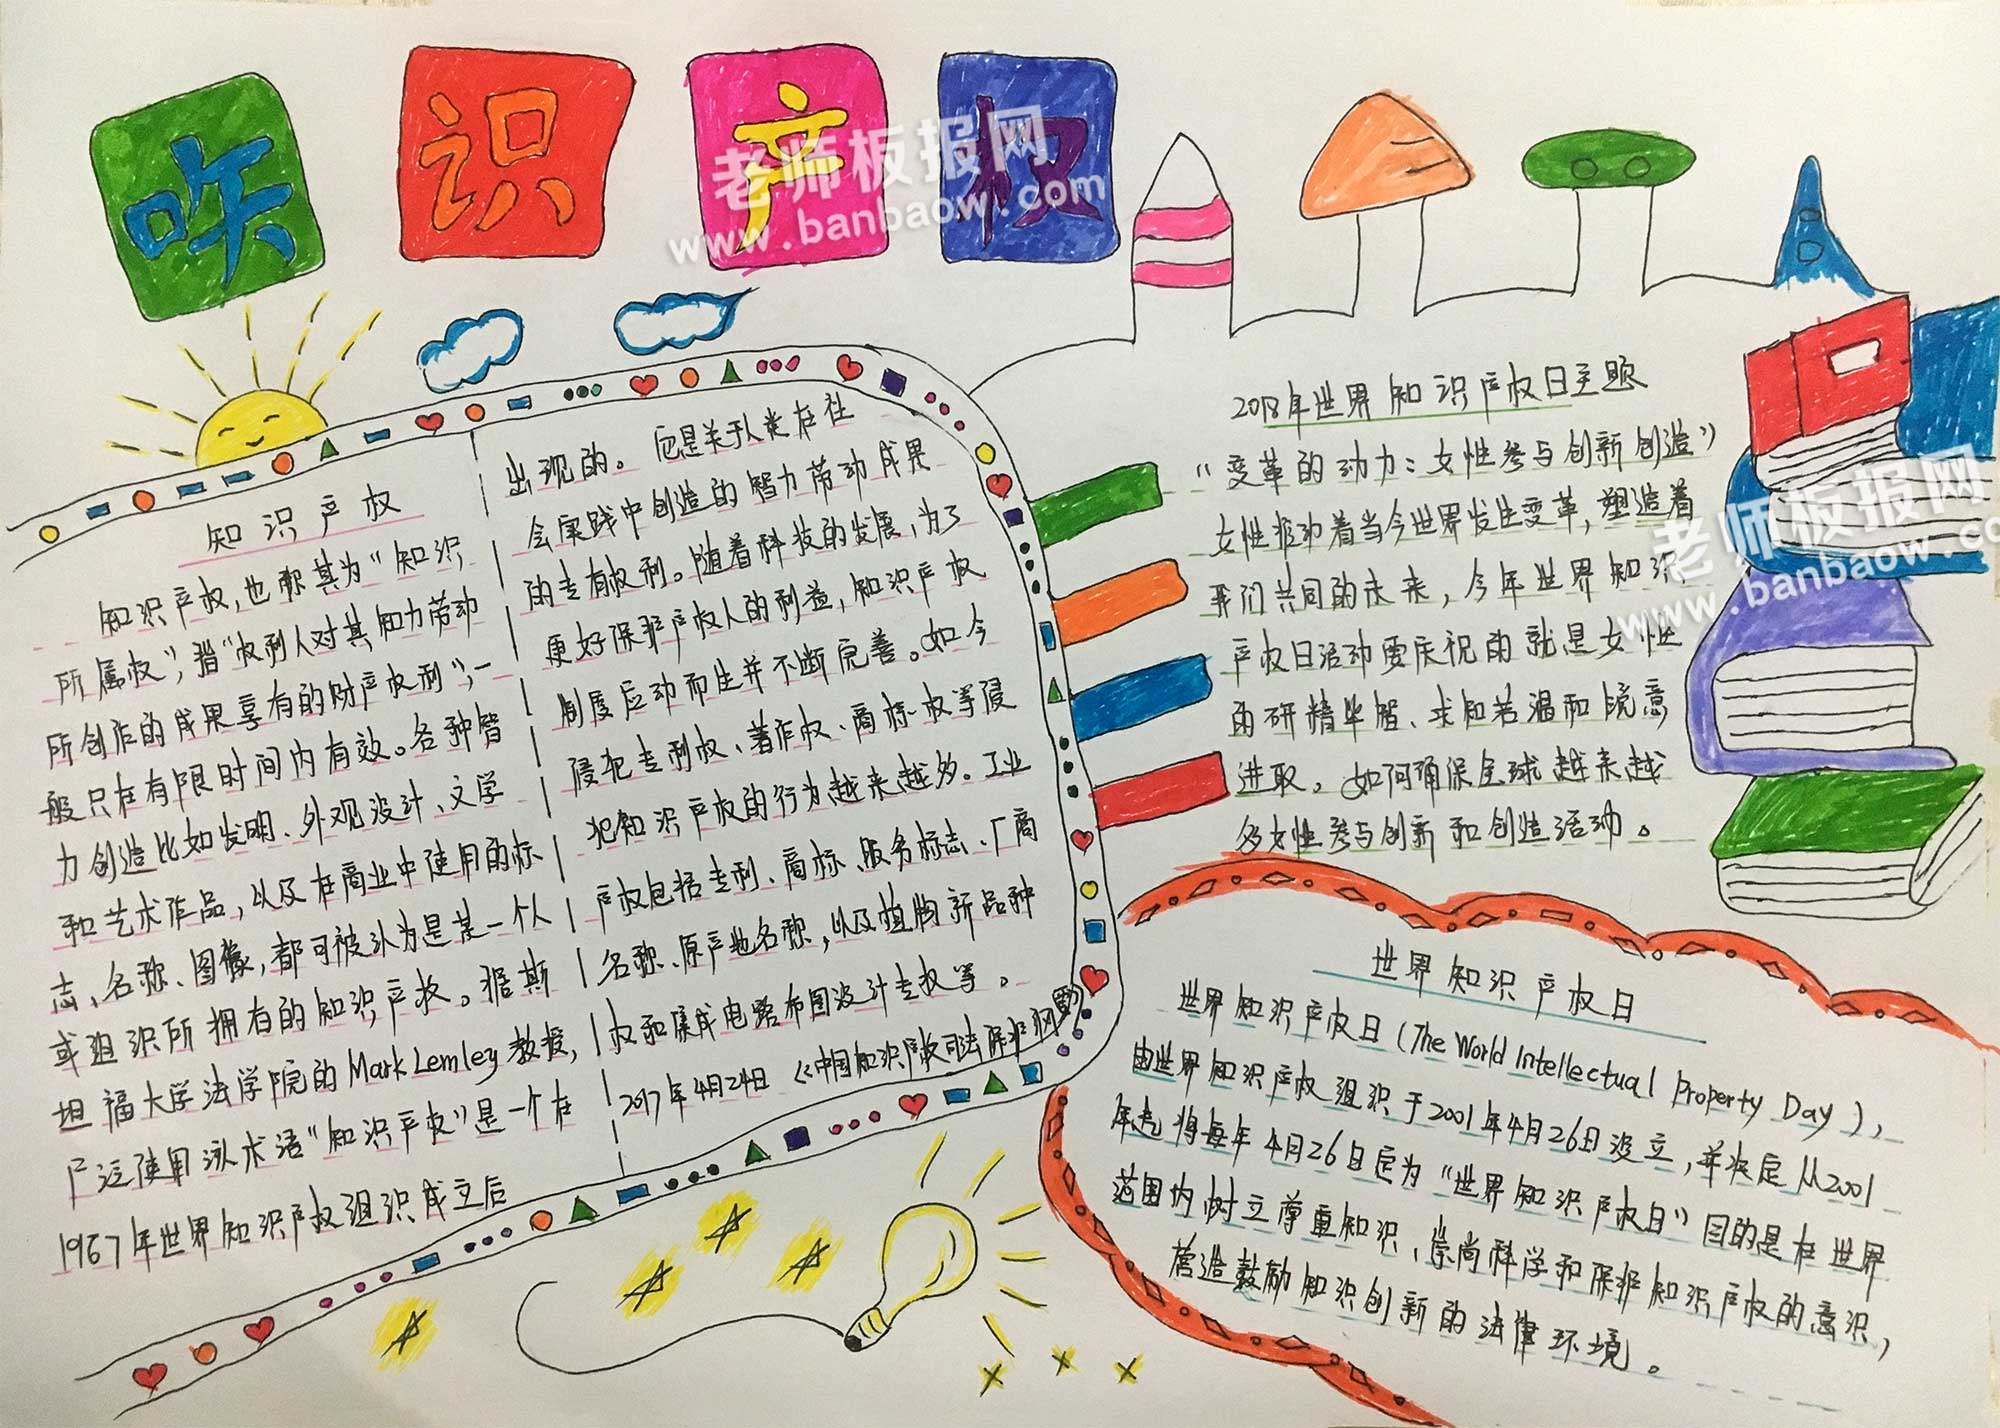 识产权
老师板报网
www.banbaow.com
知识产权
知识产权,也称其为“知识
所属权”,指“权利人对其智力劳动
所创作的成果享有的财产权利”,一
般只在有限时间内有效。各种智
力创造比如发明、外观设计、文学
和艺术作品,以及在商业中使用的标
志、名称、图像,都可被认为是某一个人
或组织所拥有的知识产权。据斯
坦福大学法学院的Mark Lemley教授,
广泛使用该术语“知识产权”是一个在
1967年世界知识产权组织成立后
出现的。它是关于人类在社
会实践中创造的智力劳动成果
的专有权利。随着科技的发展,为了
更好保护产权人的利益,知识产权
制度应动而生并不断完善。如今
侵犯专利权、著作权、商标权等侵
犯知识产权的行为越来越多。工业
产权包括专利、商标、服务标志、厂商
名称、原产地名称,以及植物新品种
权和集成电路布图设计专权等。
2017年4月24日《中国知识产权司法保护纲要》
2018年世界知识产权日主题
“变革的动力:女性参与创新创造”
女性推动着当今世界发生变革,塑造着
我们共同的未来,今年世界知识
产权日活动要庆祝的就是女性
的研精毕智、求知若渴和锐意
进取。如何确保全球越来越
多女性参与创新和创造活动。
老师板报网
www.banbaow.com
世界知识产权日
世界知识产权日(The World Intellectual Property Day),
由世界知识产权组织于2001年4月26日设立,并决定从2001
年起将每年4月26日定为“世界知识产权日”目的是在世界
范围内树立尊重知识、崇尚科学和保护知识产权的意识,
营造鼓励知识创新的法律环境。